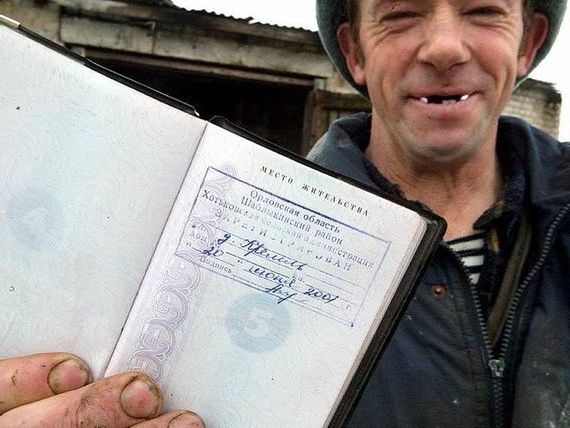 МЕСТО ЖИТЕЛЬСТВА
Орловская область
Шаблыкинский район
Хотьковская сельская администрация
ЗАРЕГИСТРИРОВАН
д. Кремль
"20" июня 2001 г.
Подпись
5